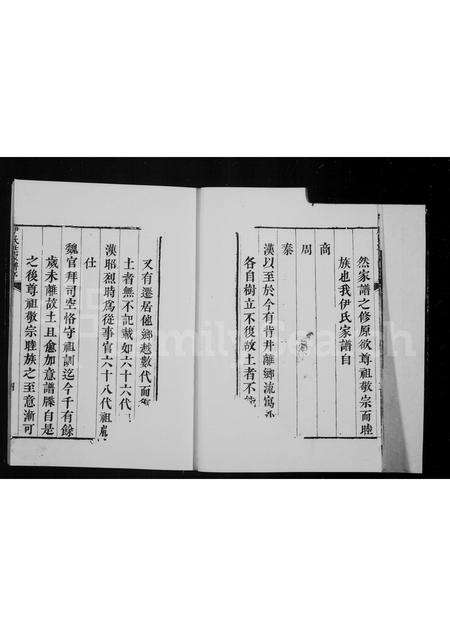 然家譜之修原欲尊祖敬宗而睦
族也我伊氏家譜自
商
周
秦
漢以至於今有背井離鄉流寓
各自樹立不復故土者不
又有遷居他鄉越數代而
土者無不記載如六十六代
漢昭烈時爲從事官六十八代祖
仕
魏官拜司空恪守祖訓迄今千有餘
歲未離故土且愈加意譜牒自是
之後尊祖敬宗睦族之至意漸可